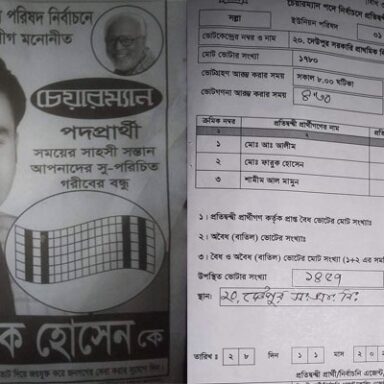 পরিষদ নির্বাচনে
লীগ মনোনীত
চেয়ারম্যান
পদপ্রার্থী
সময়ের সাহসী সন্তান
আপনাদের সু-পরিচিত
গরীবের বন্ধু
ক হোসেন কে
ভোট দিয়ে জয়যুক্ত করে জনগণের সেবা করার সুযোগ দিন।
চেয়ারম্যান পদে নির্বাচনে
সল্লা ইউনিয়ন পরিষদ ০১
ভোটকেন্দ্রের নম্বর ও নাম ২০. দেউপুর সরকারি প্রাথমিক
মোট ভোটার সংখ্যা ১৭৮০
ভোটগ্রহণ আরম্ভ করার সময় সকাল ৮.০০ ঘটিকা
ভোটগণনা আরম্ভ করার সময়
ক্রমিক নম্বর প্রতিদ্বন্দ্বী প্রার্থীগণের নাম
১ ২
১ মোঃ আঃ আলীম
২ মোঃ ফারুক হোসেন
৩ শামীম আল মামুন
১। প্রতিদ্বন্দ্বী প্রার্থীগণ কর্তৃক প্রাপ্ত বৈধ ভোটের মোট সংখ্যাঃ
২। অবৈধ (বাতিল) ভোটের সংখ্যাঃ
৩। বৈধ ও অবৈধ (বাতিল) ভোটের মোট সংখ্যা (১+২ এর সম
উপস্থিত ভোটার সংখ্যা
স্থান: ২০. দেউপুর
তারিখ ঃ ২ ৮ দিন ১ ১ মাস ২ ০ ২
প্রতিদ্বন্দ্বী প্রার্থী/নির্বাচনি এজেন্ট,